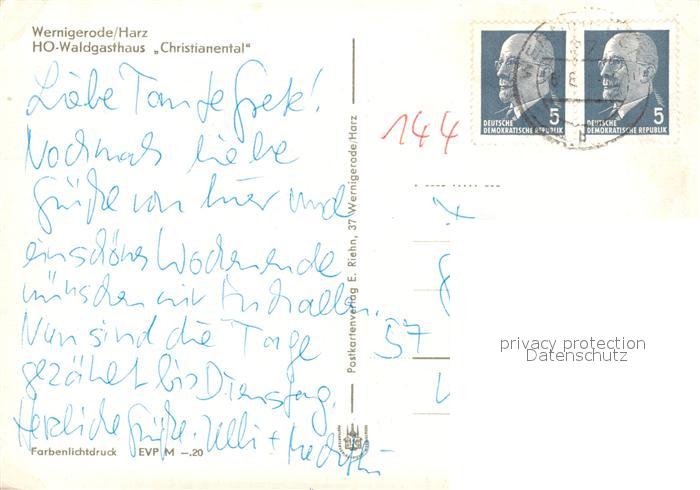 Wernigerode/Harz
HO-Waldgasthaus „Christianental"
Liebe Tante Grete!
Nochmals liebe
Grüße von hier und
ein schönes Wochenende
wünschen wir Euch allen.
Nun sind die Tage
gezählt bis Dienstag.
Herzliche Grüße. Ulli +
Farbenlichtdruck EVP M –.20
Postkartenverlag E. Riehn, 37 Wernigerode/Harz
144
DEUTSCHE
DEMOKRATISCHE REPUBLIK
5
DEUTSCHE
DEMOKRATISCHE REPUBLIK
5
57
privacy protection
Datenschutz